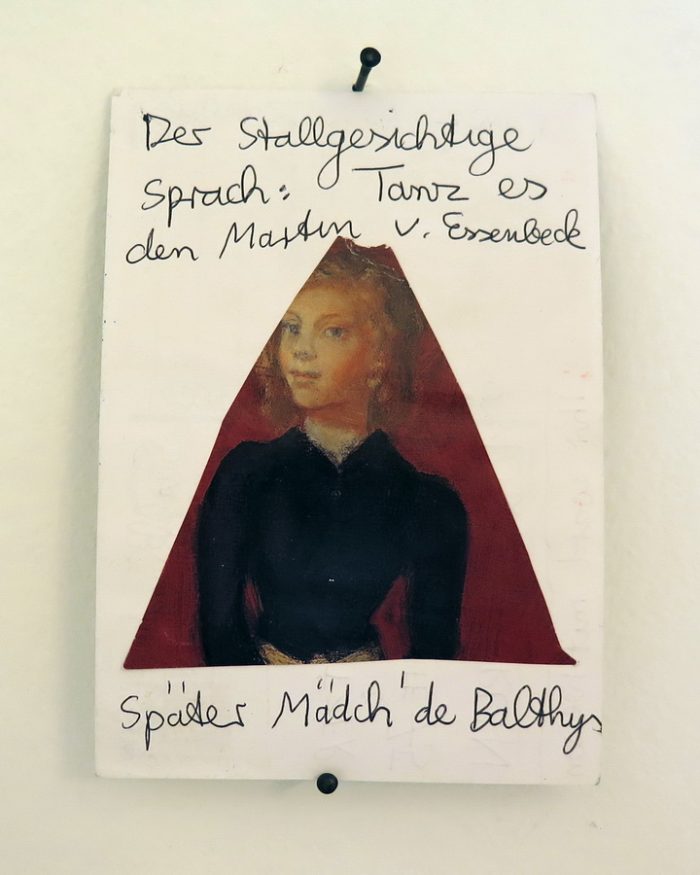 Der Stallgesichtige
Sprach: Tanz es
den Martin v. Essenbeck
Später Mädch' de Balthys